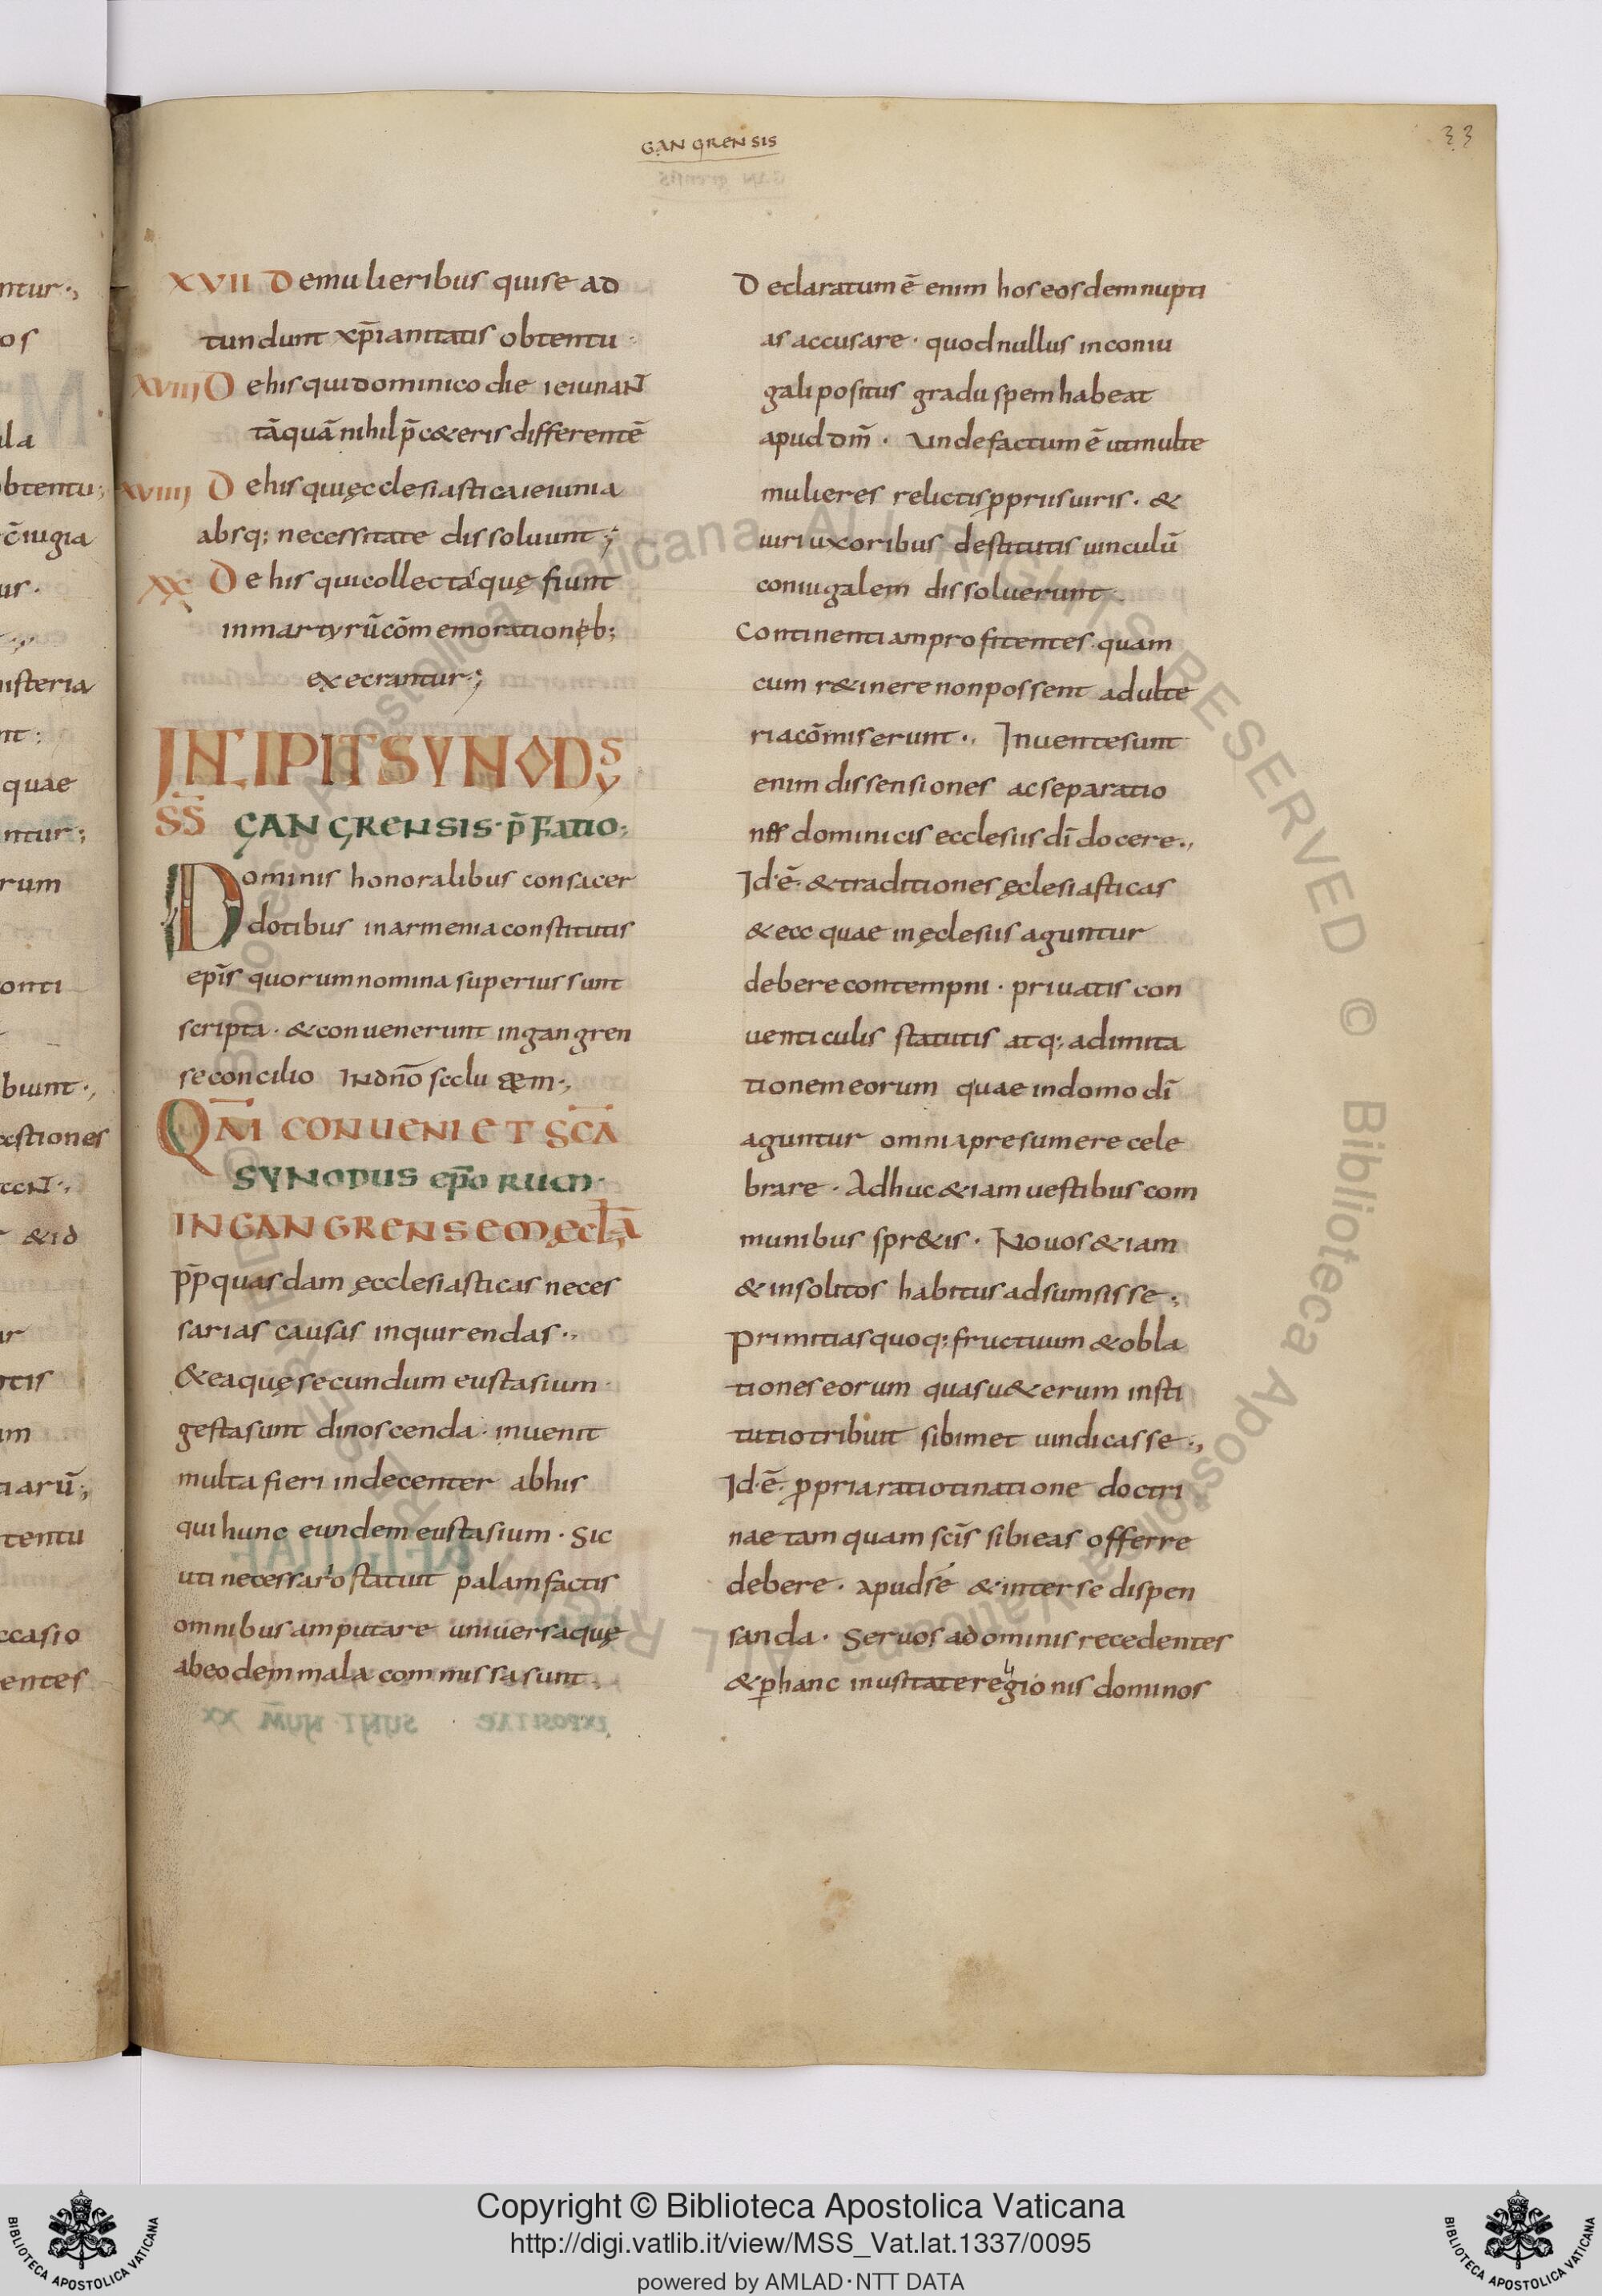 GANGRENSIS
33
XVII De mulieribus qui se ad
tundunt xp̄ianitatis obtentu
XVIII De his qui dominico die ieiunant
tāquā nihil p̄ c&eris differentē
XVIIII De his qui ęcclesiastica ieiunia
absq; necessitate dissoluunt;
XX De his qui collectas quę fiunt
in martyrū cōmemorationęb;
execrantur;
INCIPIT SYNODUS
SS̄ GANGRENSIS · p̄fatio;
Dominis honoralibus consacer
dotibus in armenia constitutis
ep̄is quorum nomina superius sunt
scripta · & conuenerunt in gangren
se concilio IN dn̄o scclu ęm.,
Qm̄ CONUENIET SCA
SYNODUS ep̄oRUm ·
IN GANGRENSEM ęclā
p̄p quasdam ęcclesiasticas neces
sarias causas inquirendas.,
& ea quę secundum eustasium
gesta sunt dinoscenda · inuenit
multa fieri indecenter ab his
qui hunc eundem eustasium · Sic
uti necessaro statuit palam factis
omnibus amputare uniuersa quę
ab eodem mala commissa sunt.
Declaratum ē enim hos eosdem nupti
as accusare · quod nullus in coniu
gali positus gradu spem habeat
apud dm̄ · Unde factum ē ut multe
mulieres relictis p̱priis uiris · &
uiri uxoribus destitutis uinculū
coniugalem dissoluerunt
Continentiam profitentes · quam
cum r&inere non possent adulte
ria cōmiserunt., Inuente sunt
enim dissensiones ac separatio
nes dominicis ecclesiis dī docere.,
Id · ē · & traditiones ęclesiasticas
& ecc quae in ęclesiis aguntur
debere contempni · priuatis con
uenticulis statutis atq; ad imita
tionem eorum quae in domo dī
aguntur omnia presumere cele
brare · Adhuc &iam uestibus com
munibus spr&is · Nouos &iam
& insolitos habitus adsumsisse;
Primitias quoq; fructuum & obla
tiones eorum quas u&erum insti
tutio tribuit sibimet uindicasse.,
Id · ē · p̱pria ratiotinatione doctri
nae tamquam scīs sibi eas offerre
debere · apud sé & inter se dispen
sanda · Seruos a dominis recedentes
& p̱ hanc inusitate regionis dominos
Copyright © Biblioteca Apostolica Vaticana
http://digi.vatlib.it/view/MSS_Vat.lat.1337/0095
powered by AMLAD·NTT DATA